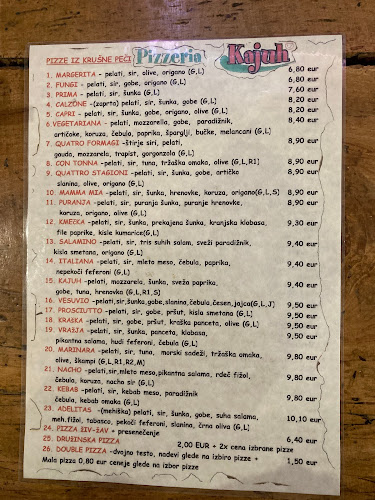 PIZZE IZ KRUŠNE PEČI Pizzeria Kajuh
1. MARGERITA - pelati, sir, olive, origano (G,L) 6,80 eur
2. FUNGI - pelati, sir, gobe, origano (G,L) 6,80 eur
3. PRIMA - pelati, sir, šunka (G,L) 7,60 eur
4. CALZONE -(zaprta) pelati, sir, šunka, gobe (G,L) 8,20 eur
5. CAPRI - pelati, sir, šunka, gobe, origano, olive (G,L) 8,20 eur
6 VEGETARIANA - pelati, mozzarella, gobe, paradižnik, 8,40 eur
artičoke, koruza, čebula, paprika, šparglji, bučke, melancani (G,L)
7. QUATRO FORMAGI -štirje siri, pelati, 8,90 eur
gouda, mozzarela, trapist, gorgonzola (G,L)
8. CON TONNA -pelati, sir, tuna, tržaška omaka, olive (G,L,R1) 8,90 eur
9. QUATTRO STAGIONI - pelati, sir, šunka, gobe, artičke 8,90 eur
slanina, olive, origano (G,L)
10. MAMMA MIA -pelati, sir, šunka, hrenovke, koruza, origano(G,L,S) 8,90 eur
11. PURANJA -pelati, sir, puranja šunka, puranje hrenovke, 8,90 eur
koruza, origano, olive (G,L)
12. KMEČKA -pelati, sir, šunka, prekajena šunka, kranjska klobasa, 9,30 eur
file paprike, kisle kumarice(G,L)
13. SALAMINO -pelati, sir, tris suhih salam, sveži paradižnik, 9,40 eur
kisla smetana, origano (G,L)
14. ITALIANA -pelati, sir, mleto meso, čebula, paprika, 9,40 eur
nepekoči feferoni (G,L)
15. KAJUH -pelati, mozzarela, šunka, sveža paprika, 9,40 eur
gobe, tuna, hrenovka (G,L,R1,S)
16. VESUVIO -pelati,sir,šunka,gobe,slanina,čebula,česen,jajca(G,L,J) 9,50 eur
17. PROSCIUTTO -pelati, sir, gobe, pršut, kisla smetana (G,L) 9,50 eur
18. KRAŠKA -pelati, sir, gobe, pršut, kraška panceta, olive (G,L) 9,50 eur
19. VRAŽJA -pelati, sir, šunka, panceta, klobasa, 9,50 eur
pikantna salama, hudi feferoni, čebula (G,L)
20. MARINARA -pelati, sir, tuna, morski sadeži, tržaška omaka, 9,80 eur
olive, škampi (G,L,R1,R2,M)
21. NACHO -pelati,sir,mleto meso,pikantna salama, rdeč fižol, 9,80 eur
čebula, koruza, nacho sir (G,L)
22. KEBAB -pelati, sir, kebab meso, paradižnik 9,80 eur
čebula, kebab omaka (G,L)
23. ADELITAS -(mehiška) pelati, sir, šunka, gobe, suha salama, 10,10 eur
meh.fižol, tabasco, pekoči feferoni, slanina, črna oliva (G,L)
24. PIZZA ŽIV-ŽAV + presenečenje 6,40 eur
25. DRUŽINSKA PIZZA 2,00 EUR + 2x cena izbrane pizze
26. DOUBLE PIZZA -dvojno testo, nadevi glede na izbiro pizze + 1,50 eur
Mala pizza 0,80 eur ceneje glede na izbor pizze